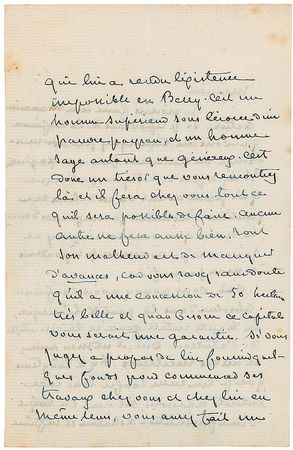 qui lui a rendu l'existence
impossible en Berry. C'est un
homme supérieur sous l'écorce d'un
pauvre paysan, et un homme
sage autant que généreux. C'est
donc un trésor que vous rencontrez
là, et il fera chez vous tout ce
qu'il sera possible de faire. aucun
autre ne fera aussi bien. tout
son malheur est de manquer
d'avances, car vous savez sans doute
qu'il a une concession de 50 hectares
très belle et qu'au besoin ce capital
vous serait une garantie. Si vous
jugez a propos de lui fournir quel-
ques fonds pour commencer ses
travaux chez vous et chez lui en
même tems, vous aurez fait une